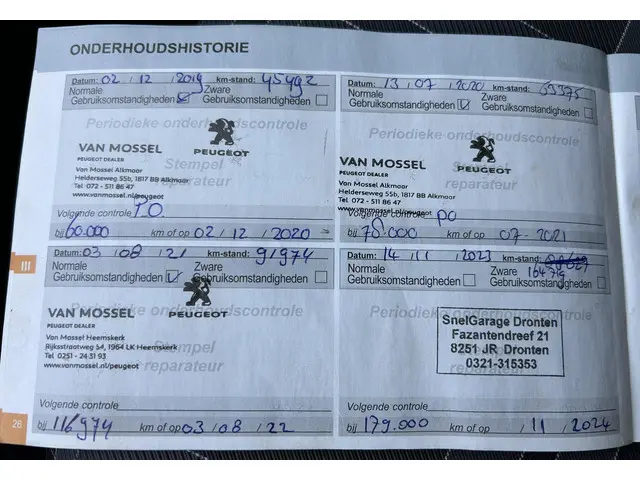 ONDERHOUDSHISTORIE
Datum: 02 / 12 / 2019 km-stand: 45492
Normale Zware
Gebruiksomstandigheden Gebruiksomstandigheden
Periodieke onderhoudscontrole
VAN MOSSEL PEUGEOT
PEUGEOT DEALER
Stempel
Van Mossel Alkmaar
reparateur
Helderseweg 55b, 1817 BB Alkmaar
Tel 072 - 511 86 47
www.vanmossel.nl/peugeot
Volgende controle P.O.
bij 60.000 km of op 02 / 12 / 2020
Datum: 13 / 07 / 2020 km-stand: 63375
Normale Zware
Gebruiksomstandigheden Gebruiksomstandigheden
Periodieke onderhoudscontrole
VAN MOSSEL PEUGEOT
PEUGEOT DEALER
Stempel
Van Mossel Alkmaar
reparateur
Helderseweg 55b, 1817 BB Alkmaar
Tel 072 - 511 86 47
www.vanmossel.nl/peugeot
Volgende controle PO
bij 78.000 km of op 07 - 2021
III
Datum: 03 / 08 / 21 km-stand: 91974
Normale Zware
Gebruiksomstandigheden Gebruiksomstandigheden
Periodieke onderhoudscontrole
VAN MOSSEL PEUGEOT
PEUGEOT DEALER
Van Mossel Heemskerk
Rijksstraatweg 54, 1964 LK Heemskerk
Stempel
Tel 0251 - 24 31 93
reparateur
www.vanmossel.nl/peugeot
Volgende controle
bij 116974 km of op 03 / 08 / 22
Datum: 14 / 11 / 2023 km-stand:
Normale Zware
Gebruiksomstandigheden Gebruiksomstandigheden
Periodieke onderhoudscontrole
SnelGarage Dronten
Fazantendreef 21
8251 JR Dronten
0321-315353
Stempel
reparateur
Volgende controle
bij 179.000 km of op / 11 / 2024
26